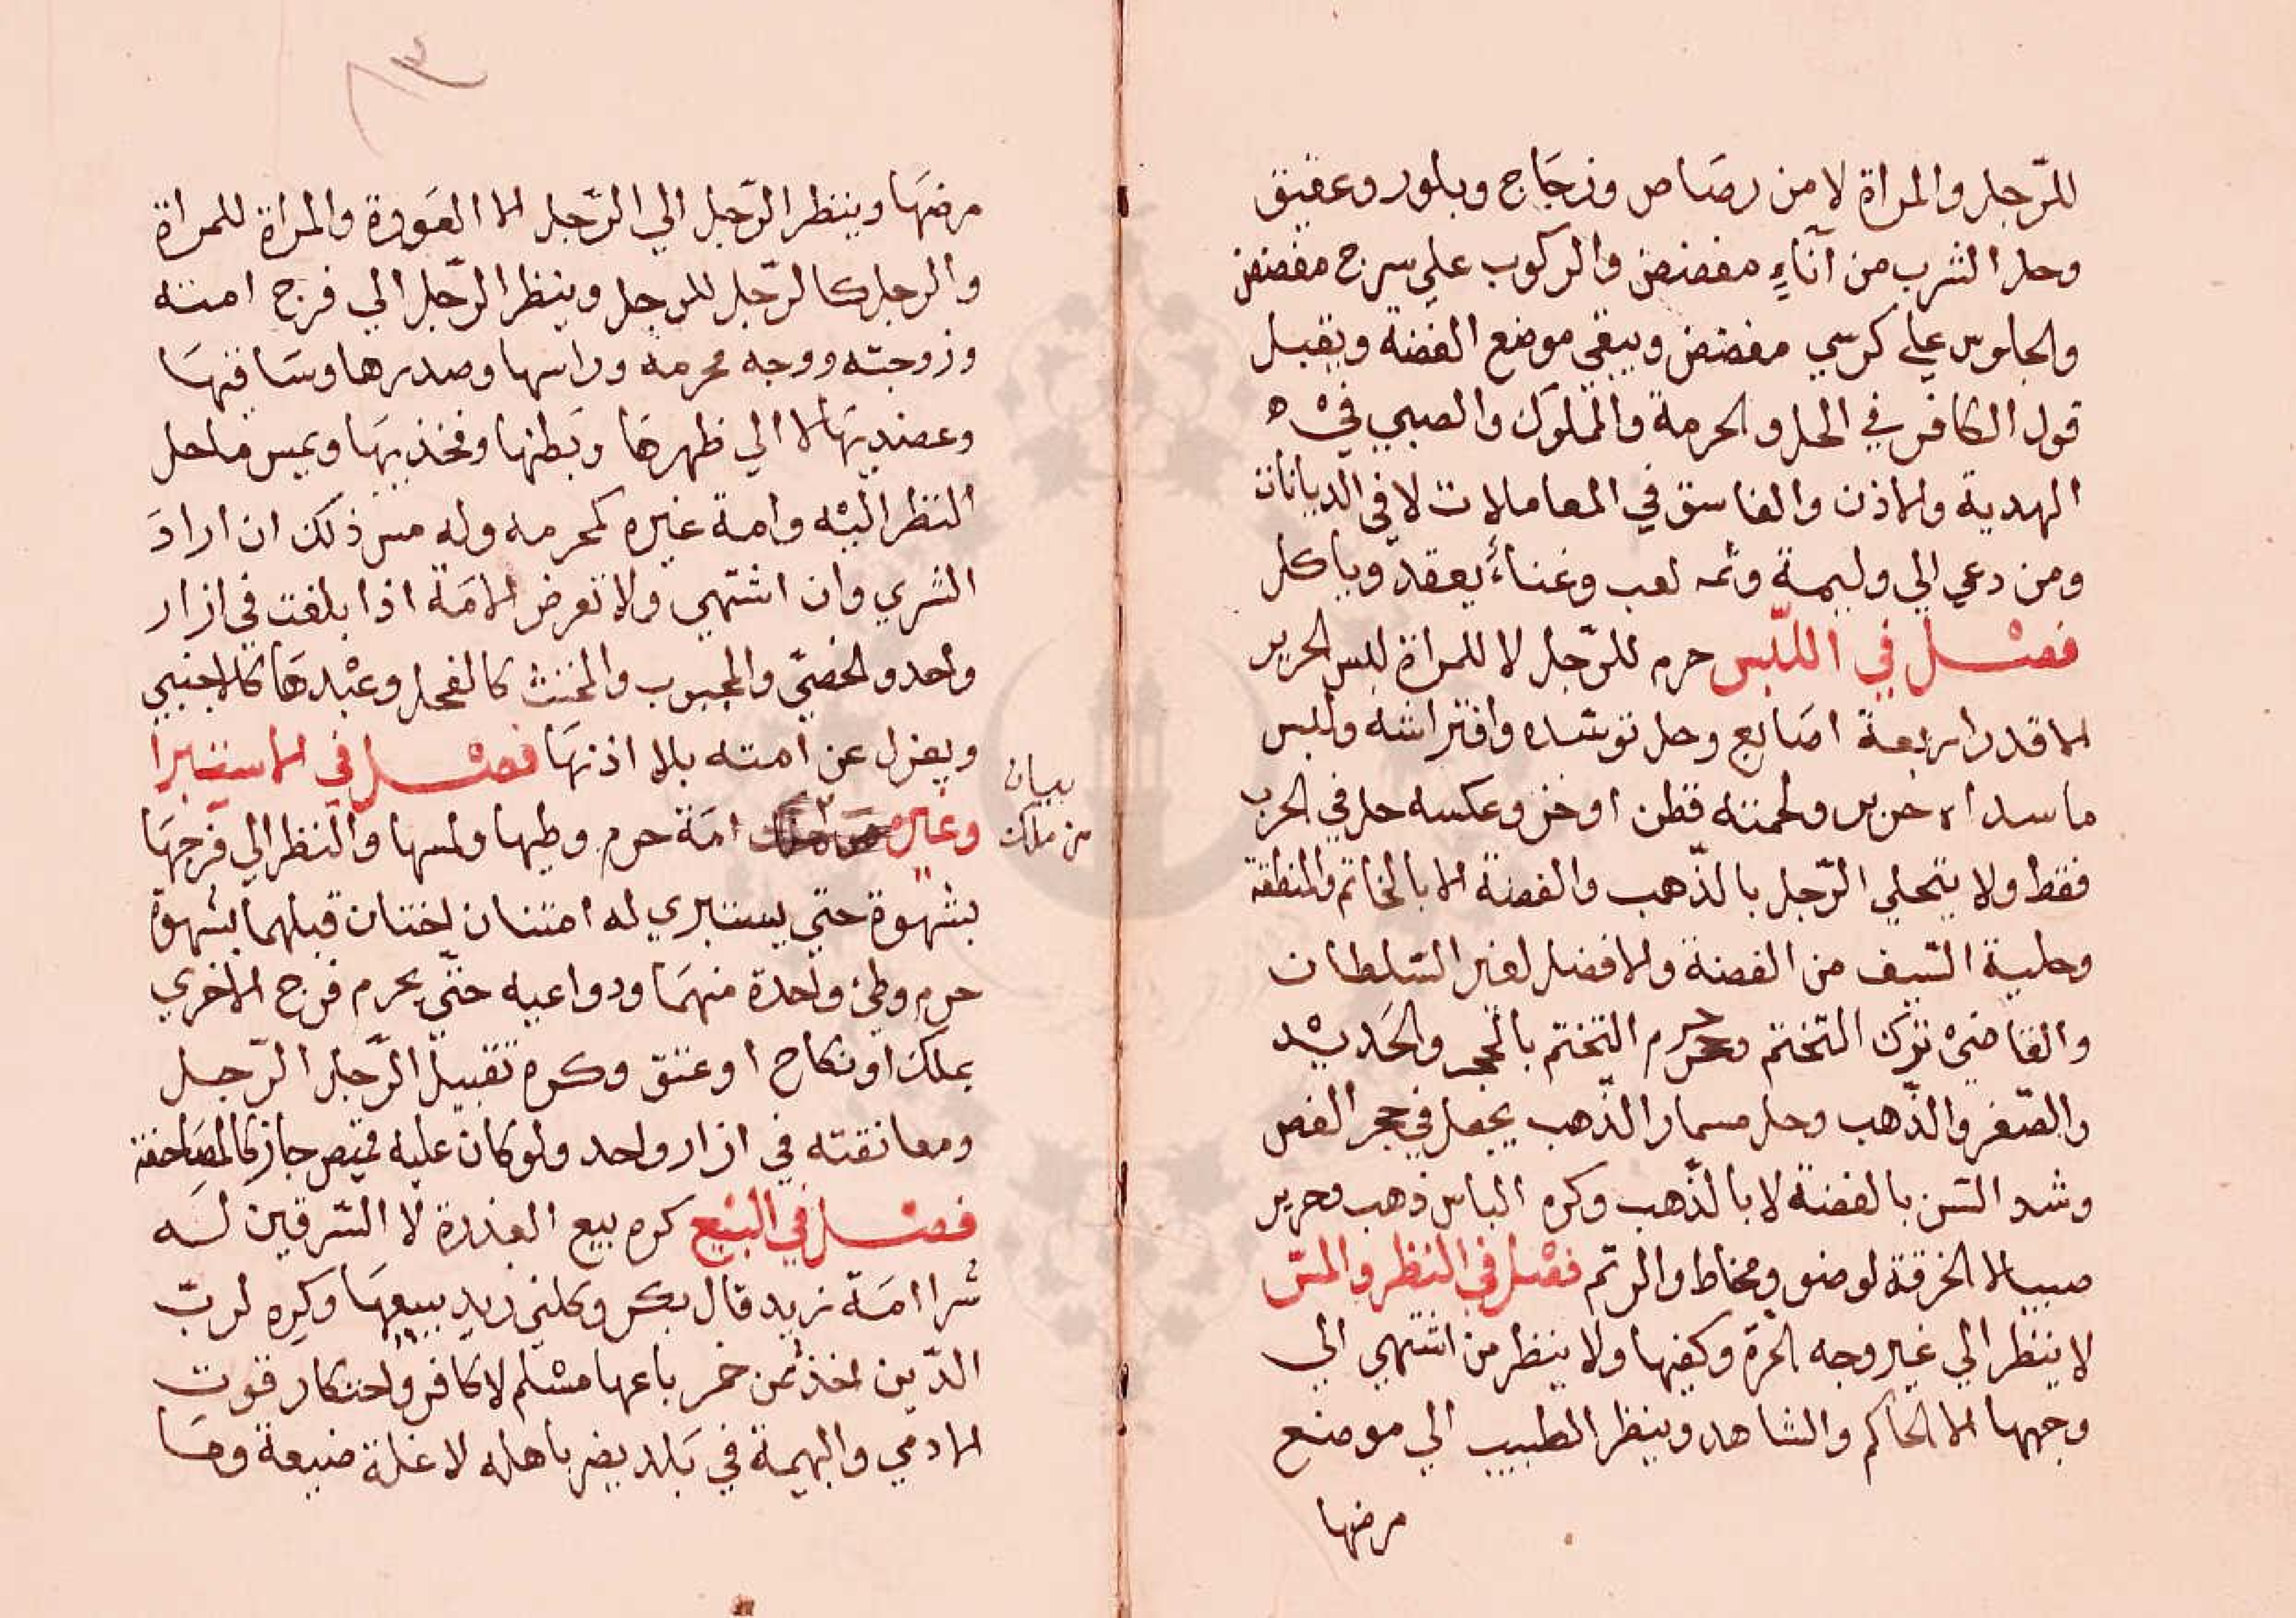 للرّجل والمراة لا من رصاص وزجاج وبلور وعقيق
وحل الشرب من آناءٍ مفضض والركوب علي سرج مفضض
والجلوس علي كرسي مفضض ويبقي موضع الفضة ويقبل
قول الكافر في الحل والحرمة والمملوك والصبي في
الهدية والاذن والفاسق في المعاملات لا في الديانات
ومن دعي الي وليمة وثمه لعب وغناء يعقد وياكل
فصل في اللّبس حرم للرّجل لا للمراة لبس الحرير
الا قدر اربعة اصابع وحل توسّده وافتراشه ولبس
ما سداه حرير ولحمته قطن او خز وعكسه حل في الحرب
فقط ولا يتحلي الرّجل بالذّهب والفضة الا بالخاتم والمنطقة
وحلية السّيف من الفضة والافضل لغير السّلطان
والقاضي ترك التختم وحرم التختم بالحجر والحديد
والصّفر والذّهب وحل مسمار الذّهب يجعل في حجر الفص
وشد السّن بالفضة لا بالذّهب وكره الباس ذهب وحرير
صبيا لا الخرقة لوضو ومخاط والرتم فصل في النظر والمسّ
لا ينظر الي غير وجه الحرّة وكفيها ولا ينظر من اشتهي الي
وجهها الا الحاكم والشاهد وينظر الطبيب الي موضع
مرضها
مرضها وينظر الرّجل الي الرّجل الا العورة والمراة للمراة
والرجل كالرّجل للرجل وينظر الرّجل الي فرج امته
وزوجته ووجه محرمه وراسها وصدرها وساقيها
وعضديها لا الي ظهرها وبطنها وفخذيها ويمس ما حل
النظر اليه وامة غيره كمحرمه وله مس ذلك ان اراد
الشري وان اشتهي ولا تعرض الامة اذا بلغت في ازار
واحد والخصيّ والمجبوب والمخنث كالفحل وعبدها كالاجنبي
ويعزل عن امته بلا اذنها فصل في الاستبرا
بيان
وغيره امة حرم وطيها ولمسها والنظر الي فرجها
من ملك
بشهوة حتي يستبري له امتان اختان قبلهما بشهوة
حرم وطئ واحدة منهما ودواعيه حتّي يحرم فرج الاخري
بملك او نكاح او عتق وكره تقبيل الرّجل الرّجل
ومعانقته في ازار واحد ولو كان عليه قميص جاز كالمصافحة
فصل في البيع كره بيع العذرة لا السّرقين له
شرا امة زيد قال بكر وكلني زيد ببيعها وكره لربّ
الدّين اخذ ثمن خمر باعها مسلم لا كافر واحتكار قوت
الادمي والبهيمة في بلد يضر باهله لا غلة ضيعة وما